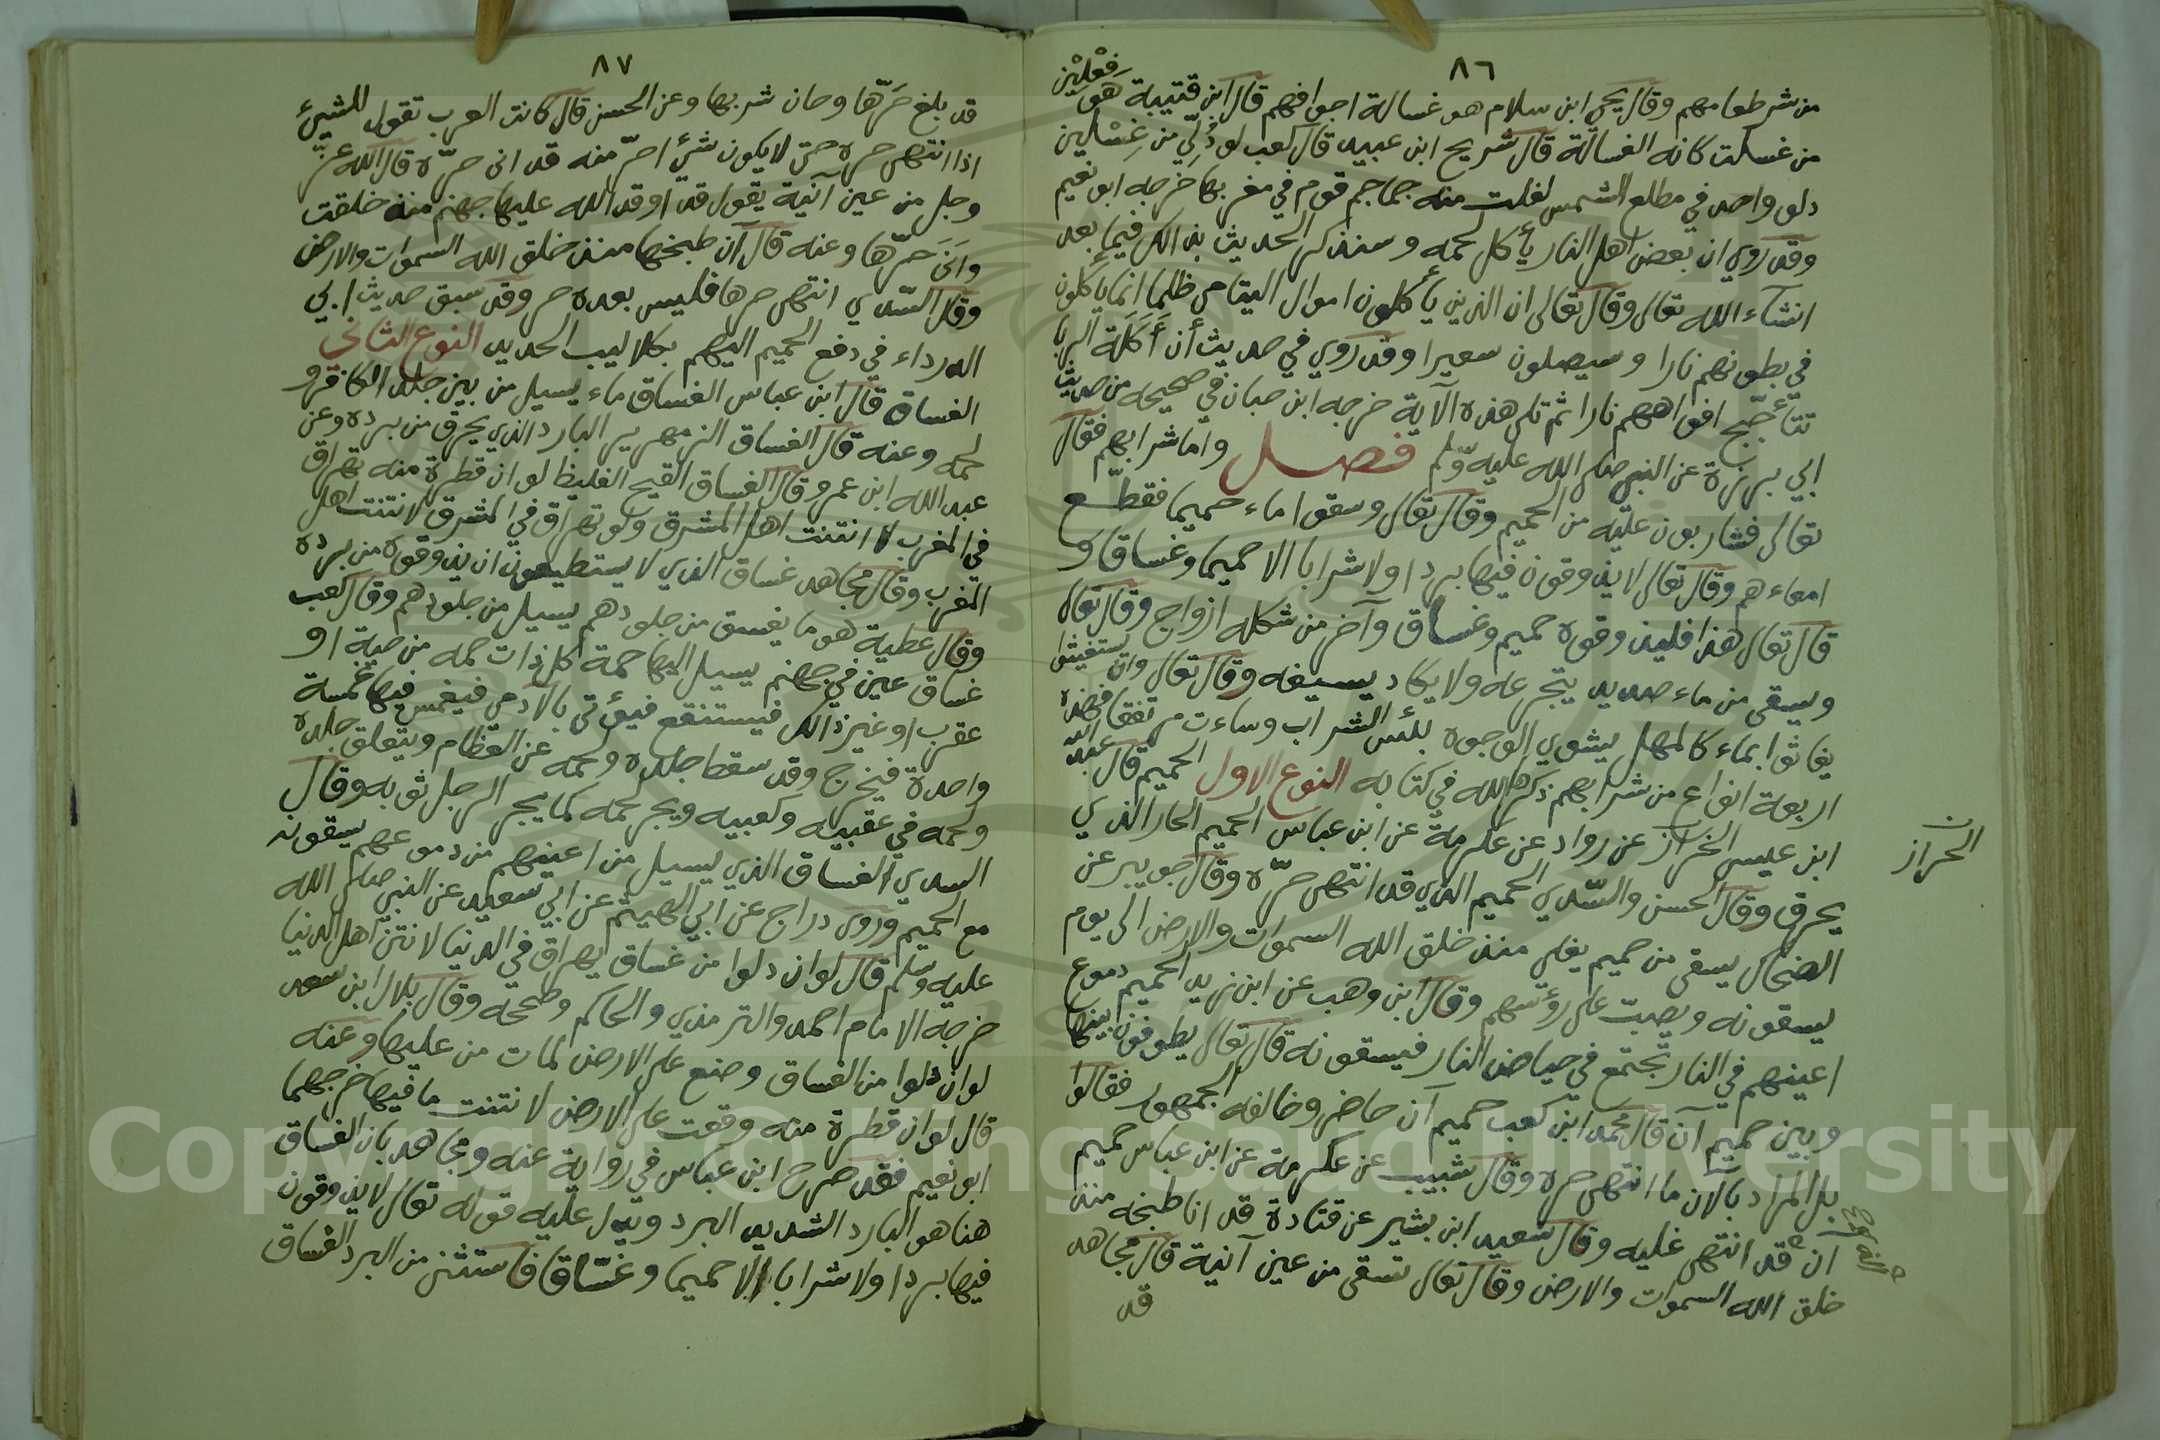 ٨٦
من شرطعامهم وقال يحيى ابن سلام هو غسالة اجوافهم قال ابن قتيبة هو فِعْلِيْن
من غسلت كانه الغسالة قال شريح ابن عبيد قال كعب لو دُلِّي من غِسْلِين
دلو واحد في مطلع الشمس لغلت منه جماجم قوم في مغربها خرجه ابو نعيم
وقد روي ان بعض اهل النار يأكل لحمه وسنذكر الحديث بذالك فيما بعد
انشاء الله تعالى وقال تعالى ان الذين يأكلون اموال اليتامى ظلما انما يأكلون
في بطونهم نارا وسيصلون سعيرا وقد روي في حديث أن أكَلَة الربا
تتأجج افواههم نارا ثم تلى هذه الآية خرجه ابن حبان في صحيحه من حديث
ابي برزة عن النبي صلى الله عليه وسلم فصل واما شرابهم فقال
تعالى فشاربون عليه من الحميم وقال تعالى وسقوا ماء حميما فقطّع
امعاءهم وقال تعالى لا يذوقون فيها بردا ولا شرابا الا حميما وغساقا و
قال تعالى هذا فليذوقوه حميم وغساق وآخر من شكله ازواج وقال تعالى
ويسقى من ماء صديد يتجرعه ولا يكاد يسيغه وقال تعالى وان يستغيثوا
يغاثوا بماء كالمهل يشوي الوجوه بئس الشراب وساءت مرتفقا فهذه
اربعة انواع من شرابهم ذكرها الله في كتابه النوع الاول الحميم قال عبد الله
ابن عيسى الخراز عن رواد عن عكرمة عن ابن عباس الحميم الحار الذي
الخراز ن
يحرق وقال الحسن والسّدي الحميم الذي قد انتهى حرّه وقال جويبر عن
الضحاك يسقى من حميم يغلي منذ خلق الله السموات والارض الى يوم
يسقونه ويصب على رؤسهم وقال ابن وهب عن ابن زيد الحميم دموع
اعينهم في النار تجتمع في حياض النار فيسقونه قال تعالى يطوفون بينها
وبين حميم آن قال محمد ابن كعب حميم آن حاضر وخالفه الجمهور فقالوا
بل المراد بالآن ما انتهى حره وقال شبيب عن عكرمة عن ابن عباس حميم
آن قد انتهى غليه وقال سعيد ابن بشير عن قتادة قد انا طبخه منذ
خلق الله السموات والارض وقال تعالى تسقى من عين آنية قال مجاهد
قد
٨٧
قد بلغ حَرّها وحان شربها وعن الحسن قال كانت العرب تقول للشيئ
اذا انتهى حره حتى لا يكون شئ احرّ منه قد انى حرّه قال الله عز
وجل من عين آنية يقول قد اوقد الله عليها جهنم منذ خلقت
وانَى حرّها وعنه قال آن طبخها منذ خلق الله السموات والارض
وقال السّدي انتهى حرها فليس بعده حر وقد سبق حديث ابي
الدرداء في دفع الحميم اليهم بكلاليب الحديد النوع الثاني
الغساق قال ابن عباس الغساق ماء يسيل من بين جلد الكافر و
لحمه وعنه قال الغساق الزمهرير البارد الذي يحرق من برده وعن
عبد الله ابن عمر وقال الغساق القيح الغليظ لو ان قطرة منه تهراق
في المغرب لانتنت اهل المشرق ولو تهراق في المشرق لانتنت اهل
المغرب وقال مجاهد غساق الذي لا يستطيعون ان يذوقوه من برده
وقال عطية هو ما يغسق من جلودهم يسيل من جلودهم وقال كعب
غساق عين في جهنم يسيل اليها حمة كل ذات حمه من حية او
عقرب او غير ذالك فيستنقع فيؤتى بالآدمي فيغمس فيها غمسة
واحدة فيخرج وقد سقط جلده ولحمه عن العظام ويتعلق جلده
ولحمه في عقبيه وكعبيه ويجر لحمه كما يجر الرجل ثوبه وقال
السدي الغساق الذي يسيل من اعينهم من دموعهم يسقونه
مع الحميم وروى دراج عن ابي الهيثم عن ابي سعيد عن النبي صلى الله
عليه وسلم قال لو ان دلوا من غساق يهراق في الدنيا لانتن اهل الدنيا
خرجه الامام احمد والترمذي والحاكم وصححه وقال بلال ابن سعد
لو ان دلوا من الغساق وضع على الارض لمات من عليها وعنه
قال لو ان قطرة منه وقعت على الارض لانتنت ما فيها خرجهما
ابو نعيم فقد صرح ابن عباس في رواية عنه ومجاهد بان الغساق
هنا هو البارد الشديد البرد ويدل عليه قوله تعالى لا يذوقون
فيها بردا ولا شرابا الا حميما وغسّاقا فاستثنى من البرد الغساق
Copyright © King Saud University